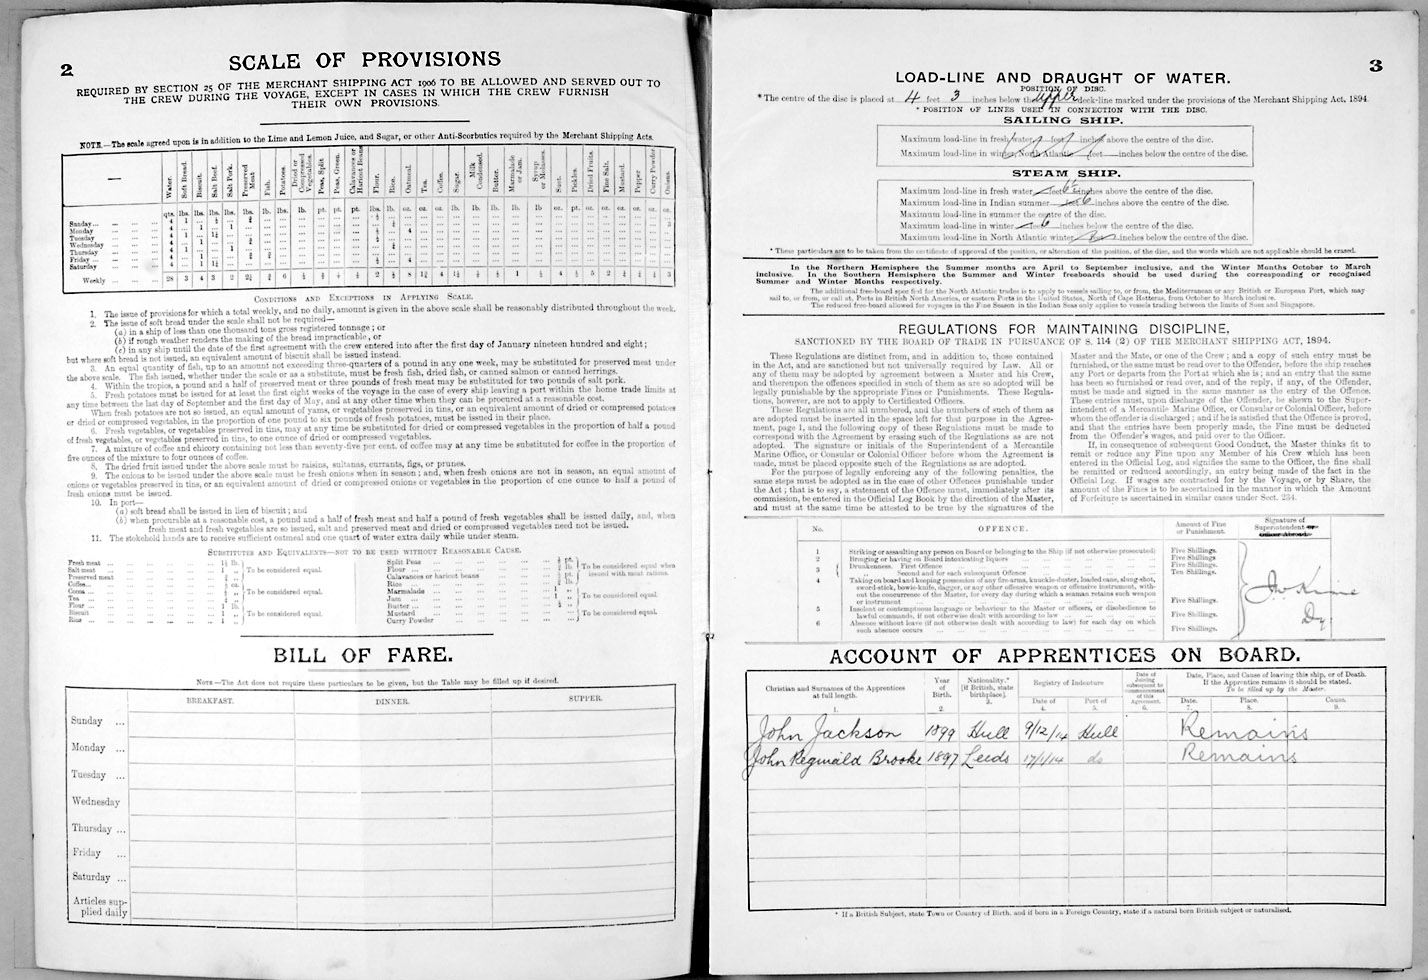 2
SCALE OF PROVISIONS
REQUIRED BY SECTION 25 OF THE MERCHANT SHIPPING ACT 1906 TO BE ALLOWED AND SERVED OUT TO
THE CREW DURING THE VOYAGE, EXCEPT IN CASES IN WHICH THE CREW FURNISH
THEIR OWN PROVISIONS.
NOTE.—The scale agreed upon is in addition to the Lime and Lemon Juice, and Sugar, or other Anti-Scorbutics required by the Merchant Shipping Acts.
Water. Soft Bread. Biscuit. Salt Beef. Salt Pork. Preserved Meat Fish. Potatoes. Dried or Compressed Vegetables. Peas, Split Peas, Green. Calavances or Haricot Beans Flour. Rice. Oatmeal. Tea. Coffee. Sugar. Milk Condensed. Butter. Marmalade or Jam. Syrup or Molasses. Suet. Pickles. Dried Fruits. Fine Salt. Mustard. Pepper Curry Powder. Onions.
Sunday
Monday
Tuesday
Wednesday
Thursday
Friday
Saturday
Weekly
CONDITIONS AND EXCEPTIONS IN APPLYING SCALE.
1. The issue of provisions for which a total weekly, and no daily, amount is given in the above scale shall be reasonably distributed throughout the week.
2. The issue of soft bread under the scale shall not be required—
(a) in a ship of less than one thousand tons gross registered tonnage; or
(b) if rough weather renders the making of the bread impracticable, or
(c) in any ship until the date of the first agreement with the crew entered into after the first day of January nineteen hundred and eight;
but where soft bread is not issued, an equivalent amount of biscuit shall be issued instead.
3. An equal quantity of fish, up to an amount not exceeding three-quarters of a pound in any one week, may be substituted for preserved meat under
the above scale. The fish issued, whether under the scale or as a substitute, must be fresh fish, dried fish, or canned salmon or canned herrings.
4. Within the tropics, a pound and a half of preserved meat or three pounds of fresh meat may be substituted for two pounds of salt pork.
5. Fresh potatoes must be issued for at least the first eight weeks of the voyage in the case of every ship leaving a port within the home trade limits at
any time between the last day of September and the first day of May, and at any other time when they can be procured at a reasonable cost.
When fresh potatoes are not so issued, an equal amount of yams, or vegetables preserved in tins, or an equivalent amount of dried or compressed potatoes
or dried or compressed vegetables, in the proportion of one pound to six pounds of fresh potatoes, must be issued in their place.
6. Fresh vegetables, or vegetables preserved in tins, may at any time be substituted for dried or compressed vegetables in the proportion of half a pound
of fresh vegetables, or vegetables preserved in tins, to one ounce of dried or compressed vegetables.
7. A mixture of coffee and chicory containing not less than seventy-five per cent. of coffee may at any time be substituted for coffee in the proportion of
five ounces of the mixture to four ounces of coffee.
8. The dried fruit issued under the above scale must be raisins, sultanas, currants, figs, or prunes.
9. The onions to be issued under the above scale must be fresh onions when in season; and, when fresh onions are not in season, an equal amount of
onions or vegetables preserved in tins, or an equivalent amount of dried or compressed onions or vegetables in the proportion of one ounce to half a pound of
fresh onions must be issued.
10. In port—
(a) soft bread shall be issued in lieu of biscuit; and
(b) when procurable at a reasonable cost, a pound and a half of fresh meat and half a pound of fresh vegetables shall be issued daily, and, when
fresh meat and fresh vegetables are so issued, salt and preserved meat and dried or compressed vegetables need not be issued.
11. The stokehold hands are to receive sufficient oatmeal and one quart of water extra daily while under steam.
SUBSTITUTES AND EQUIVALENTS—NOT TO BE USED WITHOUT REASONABLE CAUSE.
Fresh meat
Salt meat
Preserved meat
To be considered equal.
Coffee
Cocoa
Tea
To be considered equal.
Flour
Biscuit
Rice
To be considered equal.
Split Peas
Flour
Calavances or haricot beans
Rice
To be considered equal when issued with meat rations.
Marmalade
Jam
Butter
Mustard
Curry Powder
To be considered equal.
BILL OF FARE.
NOTE—The Act does not require these particulars to be given, but the Table may be filled up if desired.
BREAKFAST. DINNER. SUPPER.
Sunday ...
Monday ...
Tuesday ...
Wednesday
Thursday ...
Friday ...
Saturday ...
Articles sup-
plied daily
3
LOAD-LINE AND DRAUGHT OF WATER.
POSITION OF DISC.
*The centre of the disc is placed at 4 feet 3 inches below the upper deck-line marked under the provisions of the Merchant Shipping Act, 1894.
* POSITION OF LINES USED IN CONNECTION WITH THE DISC.
SAILING SHIP.
Maximum load-line in fresh water feet inches above the centre of the disc.
Maximum load-line in winter, North Atlantic feet inches below the centre of the disc.
STEAM SHIP.
Maximum load-line in fresh water feet inches above the centre of the disc.
Maximum load-line in Indian summer feet 6 inches above the centre of the disc.
Maximum load-line in summer the centre of the disc.
Maximum load-line in winter feet 6 inches below the centre of the disc.
Maximum load-line in North Atlantic winter inches below the centre of the disc.
* These particulars are to be taken from the certificate of approval of the position, or alteration of the position, of the disc, and the words which are not applicable should be erased.
In the Northern Hemisphere the Summer months are April to September inclusive, and the Winter Months October to March
inclusive. In the Southern Hemisphere the Summer and Winter freeboards should be used during the corresponding or recognised
Summer and Winter Months respectively.
The additional free-board specified for the North Atlantic trades is to apply to vessels sailing to, or from, the Mediterranean or any British or European Port, which may
sail to, or from, or call at, Ports in British North America, or eastern Ports in the United States, North of Cape Hatteras, from October to March inclusive.
The reduced free-board allowed for voyages in the Fine Season in the Indian Seas only applies to vessels trading between the limits of Suez and Singapore.
REGULATIONS FOR MAINTAINING DISCIPLINE,
SANCTIONED BY THE BOARD OF TRADE IN PURSUANCE OF S. 114 (2) OF THE MERCHANT SHIPPING ACT, 1894.
These Regulations are distinct from, and in addition to, those contained
in the Act, and are sanctioned but not universally required by Law. All or
any of them may be adopted by agreement between a Master and his Crew,
and thereupon the offences specified in such of them as are so adopted will be
legally punishable by the appropriate Fines or Punishments. These Regula-
tions, however, are not to apply to Certificated Officers.
These Regulations are all numbered, and the numbers of such of them as
are adopted must be inserted in the space left for that purpose in the Agree-
ment, page 1, and the following copy of these Regulations must be made to
correspond with the Agreement by erasing such of the Regulations as are not
adopted. The signature or initials of the Superintendent of a Mercantile
Marine Office, or Consular or Colonial Officer before whom the Agreement is
made, must be placed opposite such of the Regulations as are adopted.
For the purpose of legally enforcing any of the following penalties, the
same steps must be adopted as in the case of other Offences punishable under
the Act; that is to say, a statement of the Offence must, immediately after its
commission, be entered in the Official Log Book by the direction of the Master,
and must at the same time be attested to be true by the signatures of the
Master and the Mate, or one of the Crew; and a copy of such entry must be
furnished, or the same must be read over to the Offender, before the ship reaches
any Port or departs from the Port at which she is; and an entry that the same
has been so furnished or read over, and of the reply, if any, of the Offender,
must be made and signed in the same manner as the entry of the Offence.
These entries must, upon discharge of the Offender, be shewn to the Super-
intendent of a Mercantile Marine Office, or Consular or Colonial Officer, before
whom the offender is discharged; and if he is satisfied that the Offence is proved,
and that the entries have been properly made, the Fine must be deducted
from the Offender's wages, and paid over to the Officer.
If, in consequence of subsequent Good Conduct, the Master thinks fit to
remit or reduce any Fine upon any Member of his Crew which has been
entered in the Official Log, and signifies the same to the Officer, the fine shall
be remitted or reduced accordingly, an entry being made of the fact in the
Official Log. If wages are contracted for by the Voyage, or by Share, the
amount of the Fines is to be ascertained in the manner in which the Amount
of Forfeiture is ascertained in similar cases under Sect. 234.
No. OFFENCE. Amount of Fine or Punishment. Signature of Superintendent or Officer Abroad.
1 Striking or assaulting any person on Board or belonging to the Ship (if not otherwise prosecuted) Five Shillings.
2 Bringing or having on Board intoxicating liquors Five Shillings.
3 Drunkenness. First Offence Five Shillings.
Second and for each subsequent Offence Ten Shillings.
4 Taking on board and keeping possession of any fire-arms, knuckle-duster, loaded cane, slung-shot,
sword-stick, bowie-knife, dagger, or any other offensive weapon or offensive instrument, with-
out the concurrence of the Master, for every day during which a seaman retains such weapon
or instrument Five Shillings.
5 Insolent or contemptuous language or behaviour to the Master or officers, or disobedience to
lawful commands, if not otherwise dealt with according to law Five Shillings.
6 Absence without leave (if not otherwise dealt with according to law) for each day on which
such absence occurs Five Shillings.
Dy
ACCOUNT OF APPRENTICES ON BOARD.
Christian and Surnames of the Apprentices at full length. Year of Birth. Nationality.* [if British, state birthplace]. Registry of Indenture Date of Port of Date of Joining subsequent to commencement of this Agreement. Date, Place, and Cause of leaving this ship, or of Death. If the Apprentice remains it should be stated. To be filled up by the Master. Date. Place. Cause.
1. 2. 3. 4. 5. 6. 7. 8. 9.
John Jackson 1899 Hull 9/12/14 Hull Remains
John Reginald Brooke 1897 Leeds 17/1/14 do Remains
* If a British Subject, state Town or Country of Birth, and if born in a Foreign Country, state if a natural born British subject or naturalised.